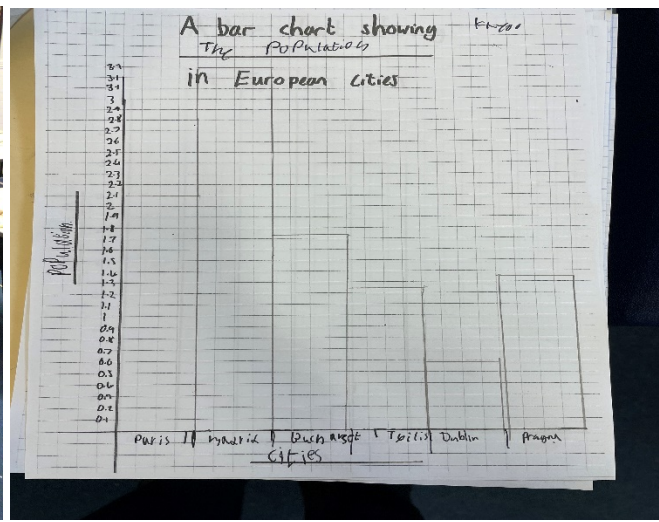 A bar chart showing
The Population
in European cities
3.1
3.1
3
2.9
2.8
2.7
2.6
2.5
2.4
2.3
2.2
2.1
2
1.9
1.8
1.7
1.6
1.5
1.4
1.3
1.2
1.1
1
0.9
0.8
0.7
0.6
0.5
0.4
0.3
0.2
0.1
Population
Paris Madrid Tbilisi Dublin
cities